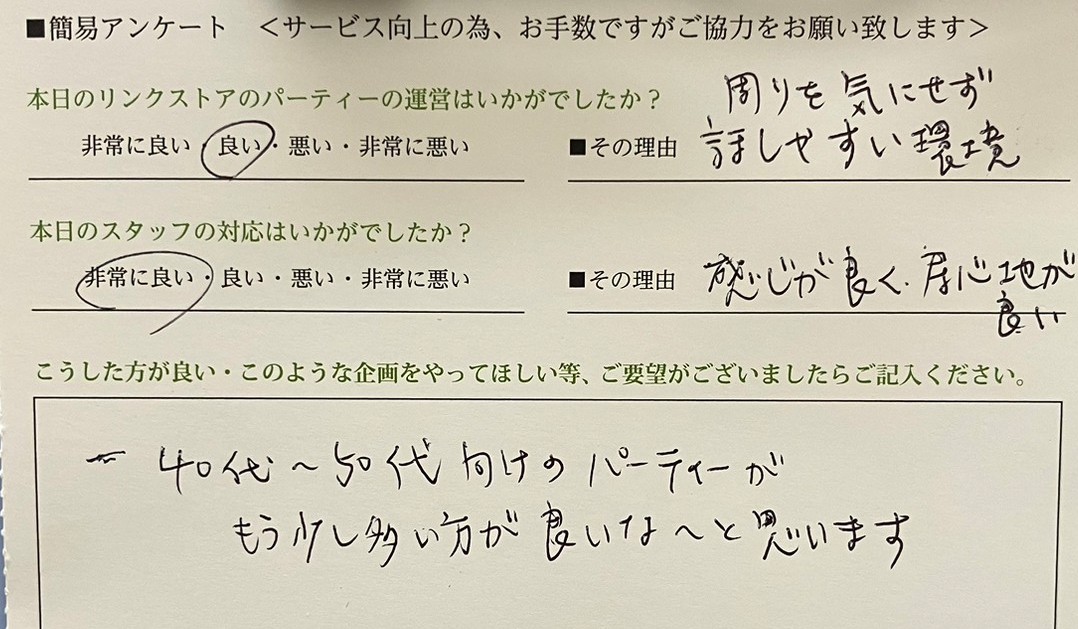 ■簡易アンケート　＜サービス向上の為、お手数ですがご協力をお願い致します＞
本日のリンクストアのパーティーの運営はいかがでしたか？
非常に良い・良い・悪い・非常に悪い
■その理由
周りを気にせず
話しやすい環境
本日のスタッフの対応はいかがでしたか？
非常に良い・良い・悪い・非常に悪い
■その理由
感じが良く、居心地が
良い
こうした方が良い・このような企画をやってほしい等、ご要望がございましたらご記入ください。
40代～50代向けのパーティーが
もう少し多い方が良いな～と思います